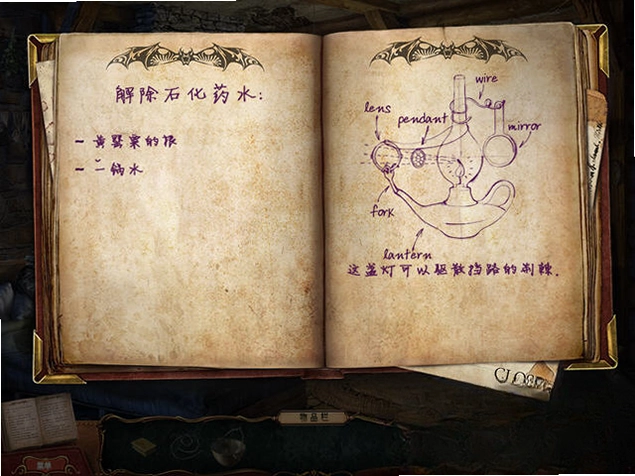 解除石化药水:
- 黄罂粟的根
- 一锅水
wire
lens
pendant
mirror
fork
lantern
这盏灯可以驱散挡路的荆棘.
CLOSE
物品栏
菜单